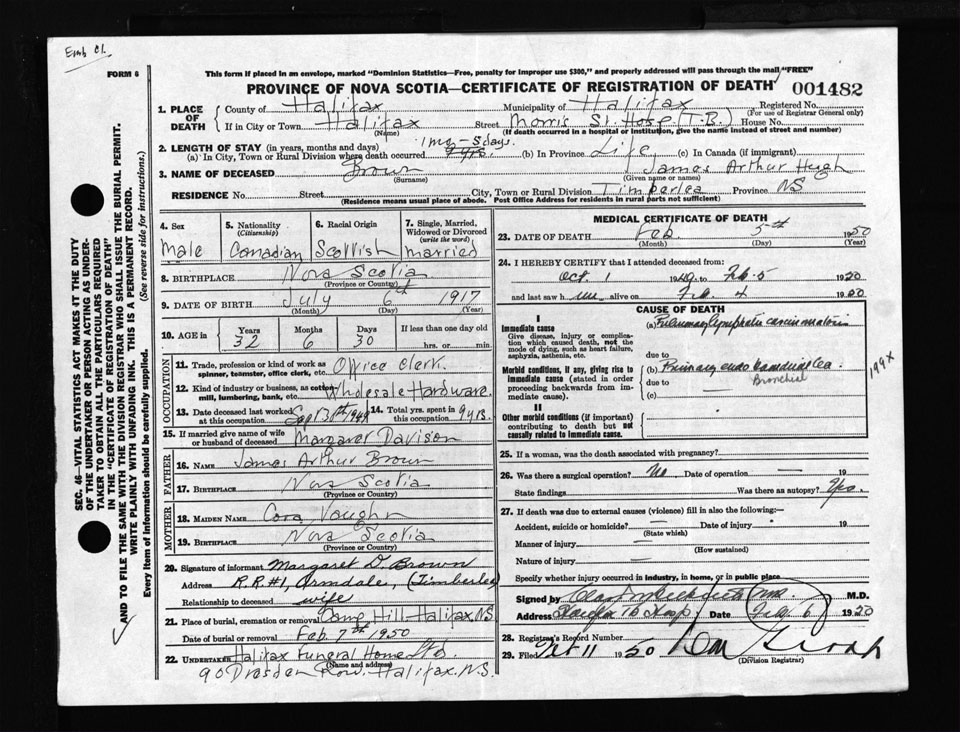 Emb Cl.
FORM 6
This form if placed in an envelope, marked "Dominion Statistics—Free, penalty for improper use $300," and properly addressed will pass through the mail "FREE"
PROVINCE OF NOVA SCOTIA—CERTIFICATE OF REGISTRATION OF DEATH 001482
1. PLACE OF DEATH County of Halifax Municipality of Halifax Registered No.
(For use of Registrar General only)
If in City or Town Halifax Street Morris St. Hosp (T.B.) House No.
(Name) (If death occurred in a hospital or institution, give the name instead of street and number)
2. LENGTH OF STAY (in years, months and days) 1 mo - 5 days.
(a) In City, Town or Rural Division where death occurred (b) In Province Life (c) In Canada (if immigrant)
3. NAME OF DECEASED Brown James Arthur Hugh
(Surname) (Given name or names)
RESIDENCE No. Street City, Town or Rural Division Timberlea Province NS
(Residence means usual place of abode. Post Office Address for residents in rural parts not sufficient)
4. Sex 5. Nationality 6. Racial Origin 7. Single, Married, Widowed or Divorced
(Citizenship) (write the word)
Male Canadian Scottish Married
8. BIRTHPLACE Nova Scotia
(Province or Country)
9. DATE OF BIRTH July 6th 1917
(Month) (Day) (Year)
10. AGE in Years Months Days If less than one day old
32 6 30 hrs. or min.
OCCUPATION
11. Trade, profession or kind of work as Office Clerk.
spinner, teamster, office clerk, etc.
12. Kind of industry or business, as cotton Wholesale Hardware.
mill, lumbering, bank, etc.
13. Date deceased last worked at this occupation Sept 30th 1949 14. Total yrs. spent in this occupation 9 yrs.
15. If married give name of wife or husband of deceased Margaret Davison
FATHER
16. NAME James Arthur Brown
17. BIRTHPLACE Nova Scotia
(Province or Country)
MOTHER
18. MAIDEN NAME Cora Vaughn
19. BIRTHPLACE Nova Scotia
(Province or Country)
20. Signature of informant Margaret D. Brown
Address R.R#1, Armdale, (Timberlea)
Relationship to deceased wife
21. Place of burial, cremation or removal Camp Hill Halifax, N.S
Date of burial or removal Feb. 7th 1950
22. UNDERTAKER Halifax Funeral Home Ltd.
(Name and address)
90 Dresden Row, Halifax, N.S.
MEDICAL CERTIFICATE OF DEATH
23. DATE OF DEATH Feb 5th 1950
(Month) (Day) (Year)
24. I HEREBY CERTIFY that I attended deceased from:
Oct. 1 1949 to Feb. 5 1950
and last saw him alive on Feb. 4 1950
CAUSE OF DEATH
I
Immediate cause (a) Pulmonary lymphatic carcinomatosis
Give disease, injury or complication which caused death, not the mode of dying, such as heart failure, asphyxia, asthenia, etc.
due to
Morbid conditions, if any, giving rise to immediate cause (stated in order proceeding backwards from immediate). (b) Primary endo bronchial Ca
Bronchial
due to
(c)
199X
II
Other morbid conditions (if important) contributing to death but not causally related to immediate cause.
25. If a woman, was the death associated with pregnancy?
26. Was there a surgical operation? No. Date of operation — 19
State findings Was there an autopsy? Yes.
27. If death was due to external causes (violence) fill in also the following:—
Accident, suicide or homicide? — Date of injury 19
(State which)
Manner of injury —
(How sustained)
Nature of injury —
Specify whether injury occurred in industry, in home, or in public place
Signed by M.D.
Address Halifax TB Hosp Date Feb. 6 1950
28. Registrar's Record Number
29. Filed Feb 11 1950
(Division Registrar)
SEC. 46—VITAL STATISTICS ACT MAKES IT THE DUTY
OF THE UNDERTAKER OR PERSON ACTING AS UNDER-
TAKER TO OBTAIN ALL THE PARTICULARS REQUIRED
IN THE "CERTIFICATE OF REGISTRATION OF DEATH"
AND TO FILE THE SAME WITH THE DIVISION REGISTRAR WHO SHALL ISSUE THE BURIAL PERMIT.
WRITE PLAINLY WITH UNFADING INK. THIS IS A PERMANENT RECORD.
Every item of information should be carefully supplied. (See reverse side for instructions.)